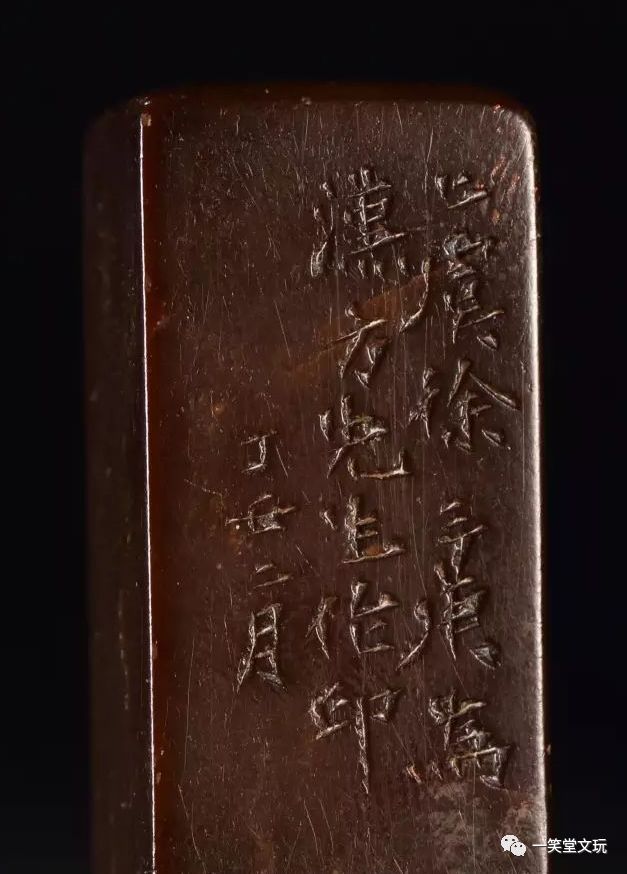 上虞徐三庚为
漢方先生作印
丁丑二月
一笑堂文玩